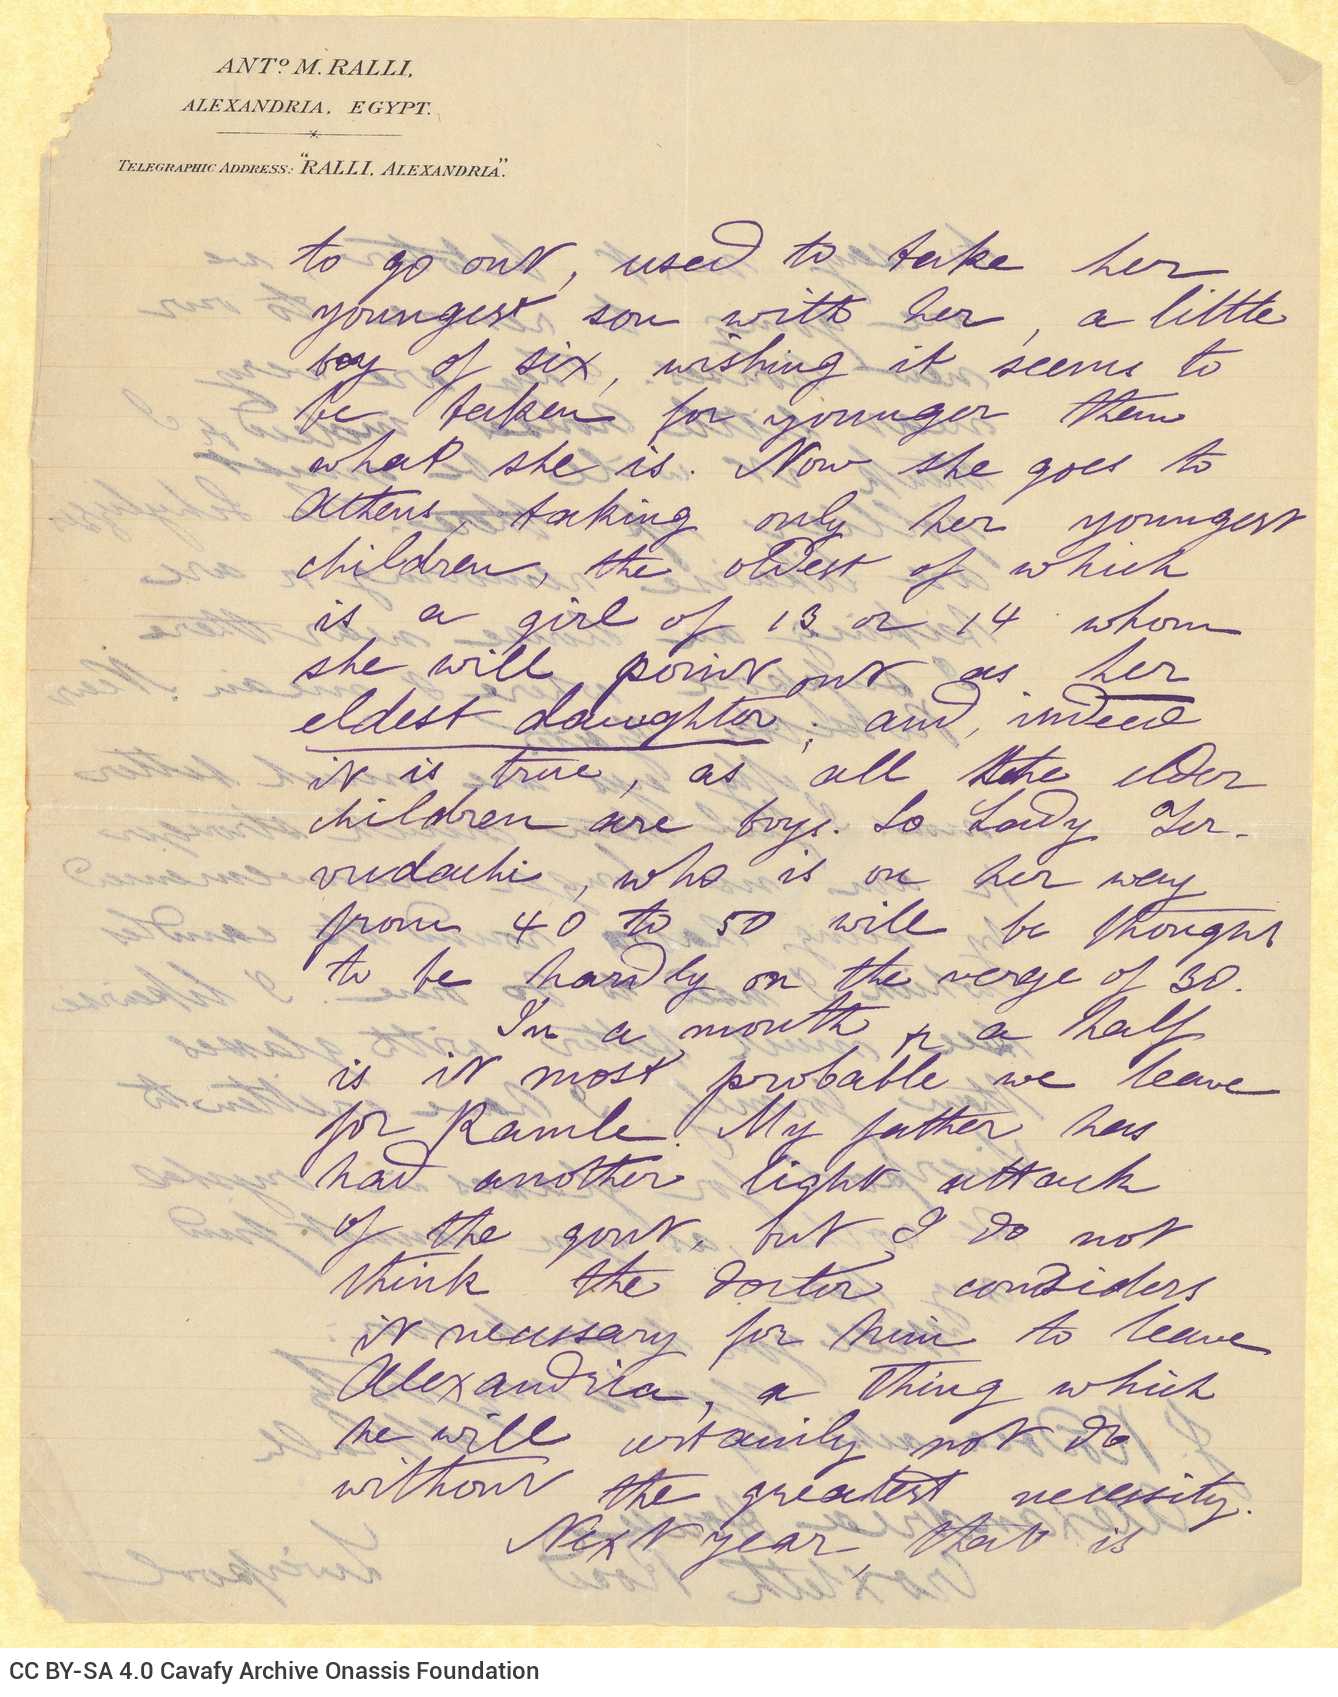 ANTº M. RALLI,
ALEXANDRIA, EGYPT.
TELEGRAPHIC ADDRESS: "RALLI, ALEXANDRIA".
to go out, used to take her
youngest son with her, a little
boy of six, wishing it seems to
be taken for younger then
what she is. Now she goes to
Athens, taking only her youngest
children, the oldest of which
is a girl of 13 or 14 whom
she will point out as her
eldest daughter; and, indeed
it is true, as all the elder
children are boys. So Lady Zer-
vudachi, who is on her way
from 40 to 50 will be thought
to be hardly on the verge of 30.
In a month & a half
is it most probable we leave
for Ramle. My father has
had another light attack
of the gout, but I do not
think the doctor considers
it necessary for him to leave
Alexandria, a thing which
he will certainly not do
without the greatest necessity.
Next year, that is
CC BY-SA 4.0 Cavafy Archive Onassis Foundation